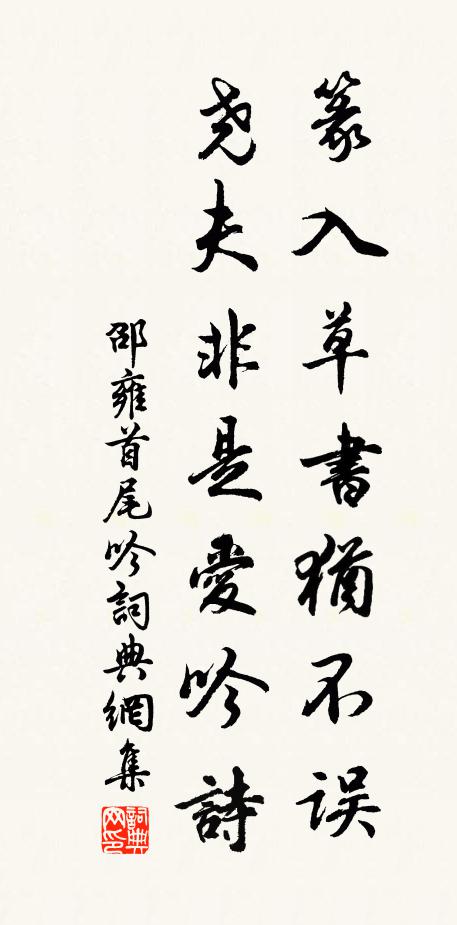 篆入草書猶不误
尧夫非是愛吟詩
邵雍首尾吟詞典網集
詞典网印